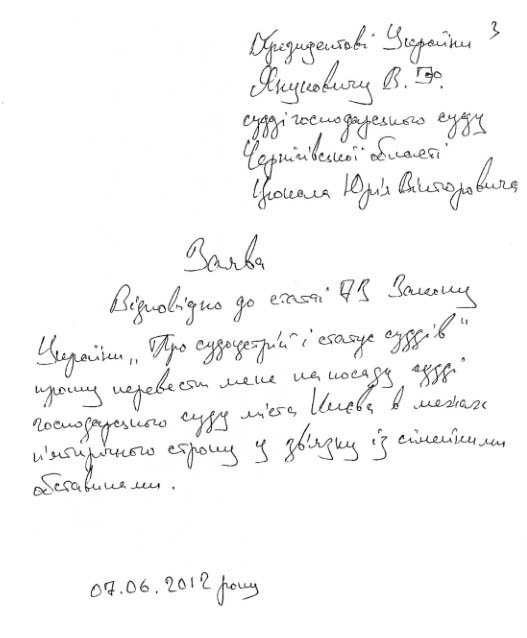 Президентові України 3
Януковичу В. Ф.
судді господарського суду
Чернігівської області
Цюкала Юрія Вікторовича
Заява
Відповідно до статті 73 Закону
України „Про судоустрій і статус суддів"
прошу перевести мене на посаду судді
господарського суду міста Києва в межах
п'ятирічного строку у зв'язку із сімейними
обставинами.
07.06.2012 року